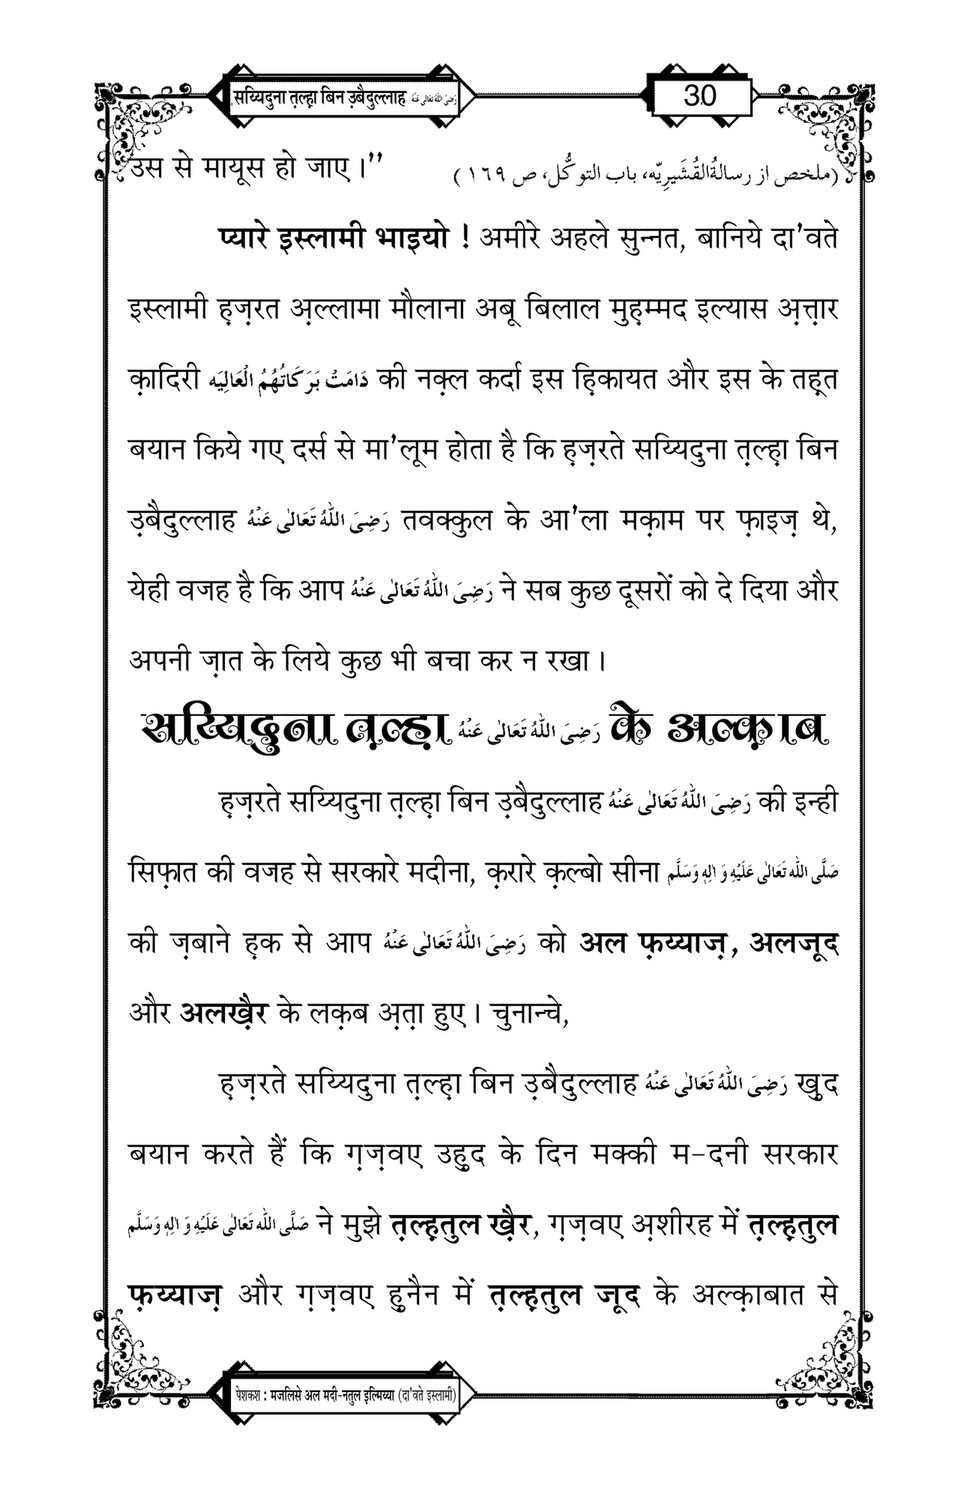 सय्यिदुना त़ल्ह़ा बिन उ़बैदुल्लाह رَضِیَ اللّٰہُ تَعَالٰی عَنْہُ
30
उस से मायूस हो जाए ।’’ (ملخص از رسالۃُالقُشَیرِیّہ، باب التوکُّل، ص ۱۶۹)
प्यारे इस्लामी भाइयो ! अमीरे अहले सुन्नत, बानिये दा’वते
इस्लामी ह़ज़रत अ़ल्लामा मौलाना अबू बिलाल मुह़म्मद इल्यास अ़त़्त़ार
क़ादिरी دَامَتْ بَرَکَاتُھُمُ الْعَالِیَہ की नक़्ल कर्दा इस ह़िकायत और इस के तह़्त
बयान किये गए दर्स से मा’लूम होता है कि ह़ज़रते सय्यिदुना त़ल्ह़ा बिन
उ़बैदुल्लाह رَضِیَ اللّٰہُ تَعَالٰی عَنْہُ तवक्कुल के आ’ला मक़ाम पर फ़ाइज़ थे,
येही वजह है कि आप رَضِیَ اللّٰہُ تَعَالٰی عَنْہُ ने सब कुछ दूसरों को दे दिया और
अपनी ज़ात के लिये कुछ भी बचा कर न रखा ।
सय्यिदुना त़ल्ह़ा رَضِیَ اللّٰہُ تَعَالٰی عَنْہُ के अल्क़ाब
ह़ज़रते सय्यिदुना त़ल्ह़ा बिन उ़बैदुल्लाह رَضِیَ اللّٰہُ تَعَالٰی عَنْہُ की इन्ही
सिफ़ात की वजह से सरकारे मदीना, क़रारे क़ल्बो सीना صَلَّی اللّٰہ تَعَالٰی عَلَیْہِ وَ اٰلِہٖ وَسَلَّم
की ज़बाने ह़क से आप رَضِیَ اللّٰہُ تَعَالٰی عَنْہُ को अल फ़य्याज़, अलजूद
और अलख़ैर के लक़ब अ़त़ा हुए । चुनान्चे,
ह़ज़रते सय्यिदुना त़ल्ह़ा बिन उ़बैदुल्लाह رَضِیَ اللّٰہُ تَعَالٰی عَنْہُ ख़ुद
बयान करते हैं कि ग़ज़वए उह़ुद के दिन मक्की म-दनी सरकार
صَلَّی اللّٰہ تَعَالٰی عَلَیْہِ وَ اٰلِہٖ وَسَلَّم ने मुझे त़ल्ह़तुल ख़ैर, ग़ज़वए अ़शीरह में त़ल्ह़तुल
फ़य्याज़ और ग़ज़वए ह़ुनैन में त़ल्ह़तुल जूद के अल्क़ाबात से
पेशकश : मजलिसे अल मदी-नतुल इल्मिय्या (दा’वते इस्लामी)